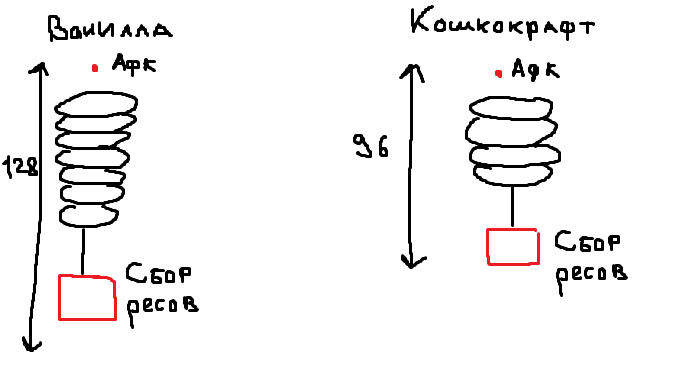 Ванилла
Афк
128
Сбор
ресов
Кошкокрафт
Афк
96
Сбор
ресов